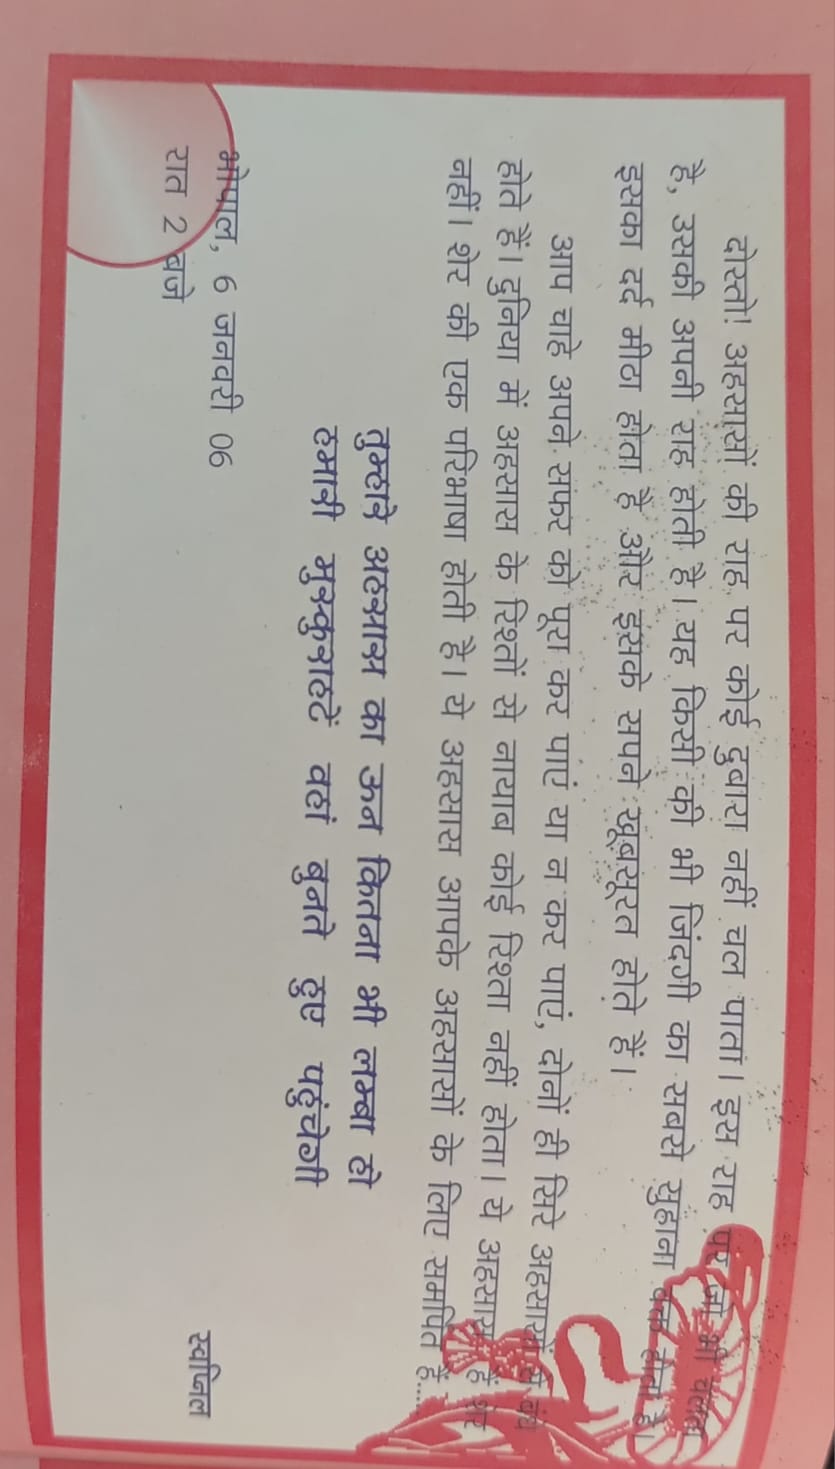 दोस्तो! अहसासों की राह पर कोई दुबारा नहीं चल पाता। इस राह पर जो भी चलता
है, उसकी अपनी राह होती है। यह किसी की भी जिंदगी का सबसे सुहाना वक्त होता है।
इसका दर्द मीठा होता है और इसके सपने खूबसूरत होते हैं।
आप चाहे अपने सफर को पूरा कर पाएं या न कर पाएं, दोनों ही सिरे अहसासों से बंधे
होते हैं। दुनिया में अहसास के रिश्तों से नायाब कोई रिश्ता नहीं होता। ये अहसास हैं शेर
नहीं। शेर की एक परिभाषा होती है। ये अहसास आपके अहसासों के लिए समर्पित हैं....
तुम्हारे अहसास का ऊन कितना भी लम्बा हो
हमारी मुस्कुराहटें वहां बुनते हुए पहुंचेगी
भोपाल, 6 जनवरी 06
रात 2 बजे
स्वप्निल